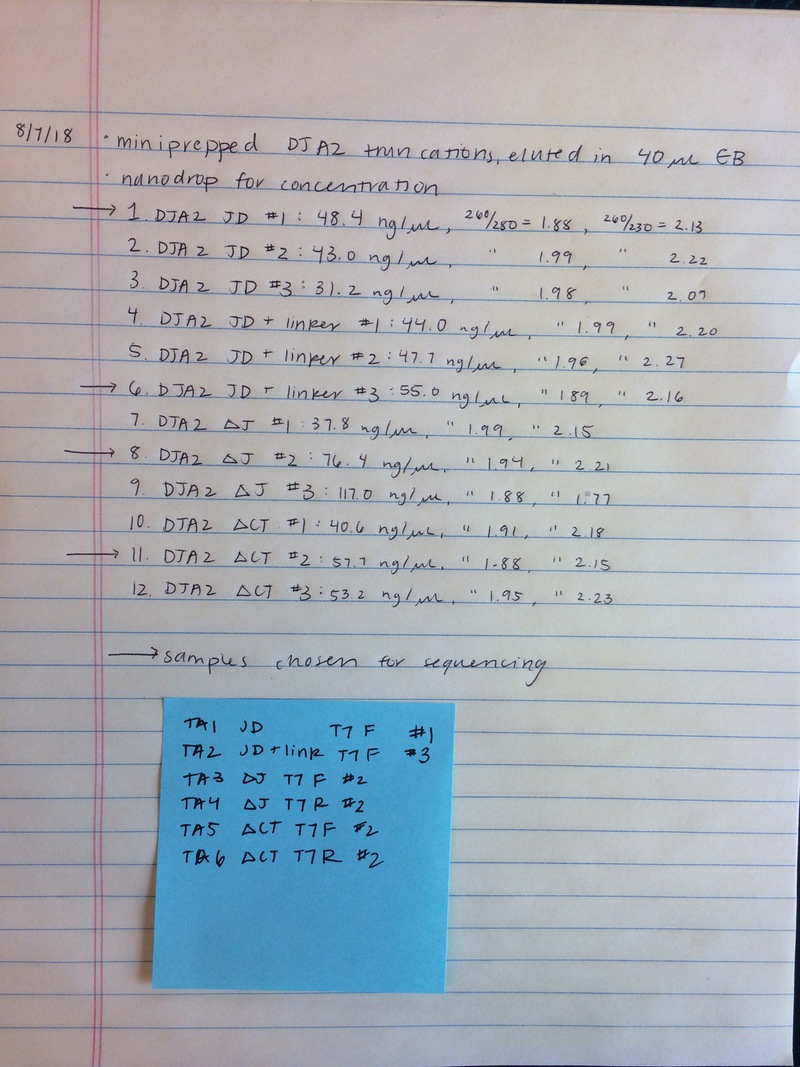 8/7/18 · miniprepped DJA2 truncations, eluted in 40 µL EB
· nanodrop for concentration
→ 1. DJA2 JD #1: 48.4 ng/µL, 260/280 = 1.88, 260/230 = 2.13
2. DJA2 JD #2: 43.0 ng/µL, " 1.99, " 2.22
3. DJA2 JD #3: 31.2 ng/µL, " 1.98, " 2.09
4. DJA2 JD + linker #1: 44.0 ng/µL, " 1.99, " 2.20
5. DJA2 JD + linker #2: 47.7 ng/µL, " 1.96, " 2.27
→ 6. DJA2 JD + linker #3: 55.0 ng/µL, " 1.89, " 2.16
7. DJA2 ΔJ #1: 37.8 ng/µL, " 1.99, " 2.15
→ 8. DJA2 ΔJ #2: 76.4 ng/µL, " 1.94, " 2.21
9. DJA2 ΔJ #3: 117.0 ng/µL, " 1.88, " 1.77
10. DJA2 ΔCT #1: 40.6 ng/µL, " 1.91, " 2.18
→ 11. DJA2 ΔCT #2: 57.7 ng/µL, " 1.88, " 2.15
12. DJA2 ΔCT #3: 53.2 ng/µL, " 1.95, " 2.23
→ samples chosen for sequencing
TA1 JD T7 F #1
TA2 JD + link T7 F #3
TA3 ΔJ T7 F #2
TA4 ΔJ T7 R #2
TA5 ΔCT T7 F #2
TA6 ΔCT T7 R #2